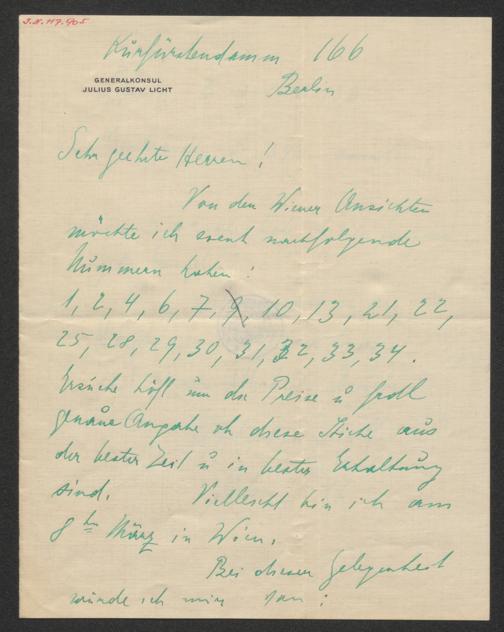 J.N. 117.905
Kurfürstendamm 166
GENERALKONSUL
JULIUS GUSTAV LICHT
Berlin
Sehr geehrte Herren!
Von den Wiener Ansichten
möchte ich event nachfolgende
Nummern haben:
1, 2, 4, 6, 7, 9, 10, 13, 21, 22,
25, 28, 29, 30, 31, 32, 33, 34.
Ersuche höfl um die Preise u
genaue Angabe ob diese Stiche aus
der bester Zeit u in bester Erhaltung
sind. Vielleicht bin ich am
8 März in Wien.
Bei dieser Gelegenheit
würde ich mir